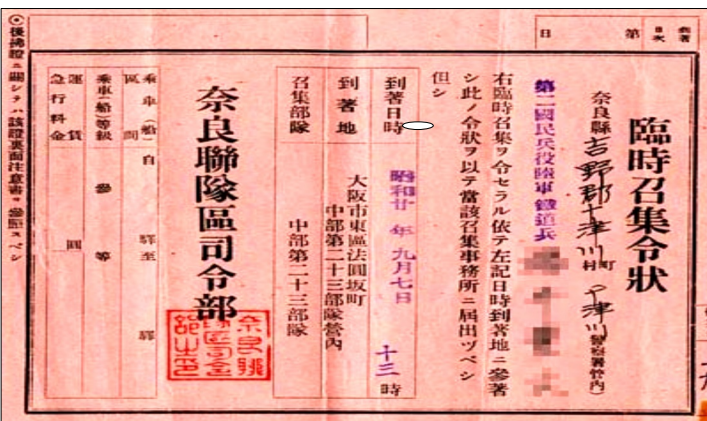 到著
日次
第
日
臨時召集令狀
奈良縣吉野郡十津川村町
十津川警察署管內)
第二國民兵役陸軍 鐵道兵
右臨時召集ヲ令セラル依テ左記日時到著地ニ參著
シ此ノ令狀ヲ以テ當該召集事務所ニ屆出ヅベシ
但シ
到著日時
昭和廿年九月七日
十三時
到著地
大阪市東區法圓坂町
中部第二十三部隊營內
召集部隊
中部第二十三部隊
奈良聯隊區司令部
奈良聯隊區司令部之印
乘車(船)區間
自 驛至 驛
乘車(船)等級
參等
運賃
急行料金
圓
◉後拂證ニ關シテハ該證裏面注意書ヲ參照スベシ